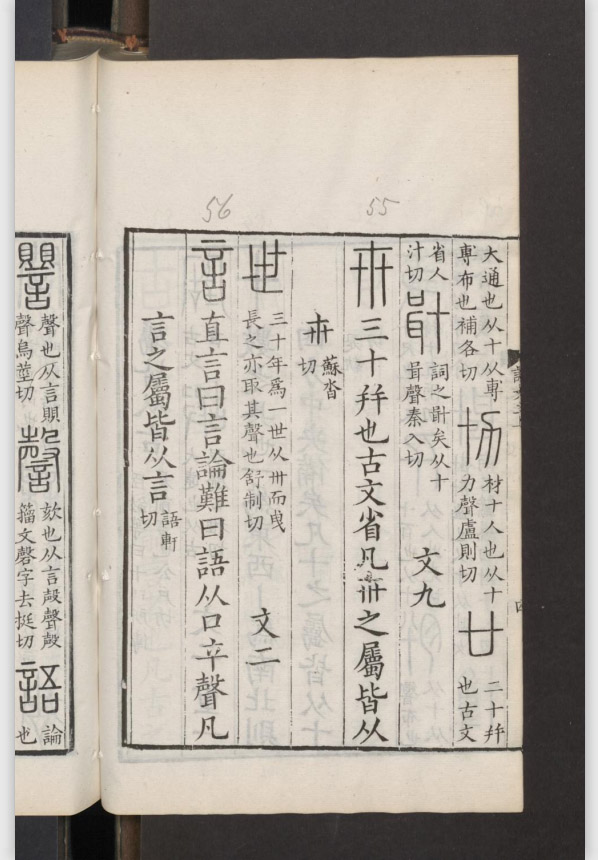 55
56
大通也从十从尃尃布也補各切 𠦂 材十人也从十力聲盧則切 廿 二十幷也古文
省人汁切 𠦮 詞之𠦮矣从十咠聲秦入切 文九
卅 三十幷也古文省凡卅之屬皆从
卅 蘇沓切
世 三十年爲一世从卅而曳長之亦取其聲也舒制切 文二
言 直言曰言論難曰語从口䇂聲凡
言之屬皆从言 語軒切
譻 聲也从言賏聲烏莖切 謦 欬也从言殸聲殸籒文磬字去挺切 語 論也